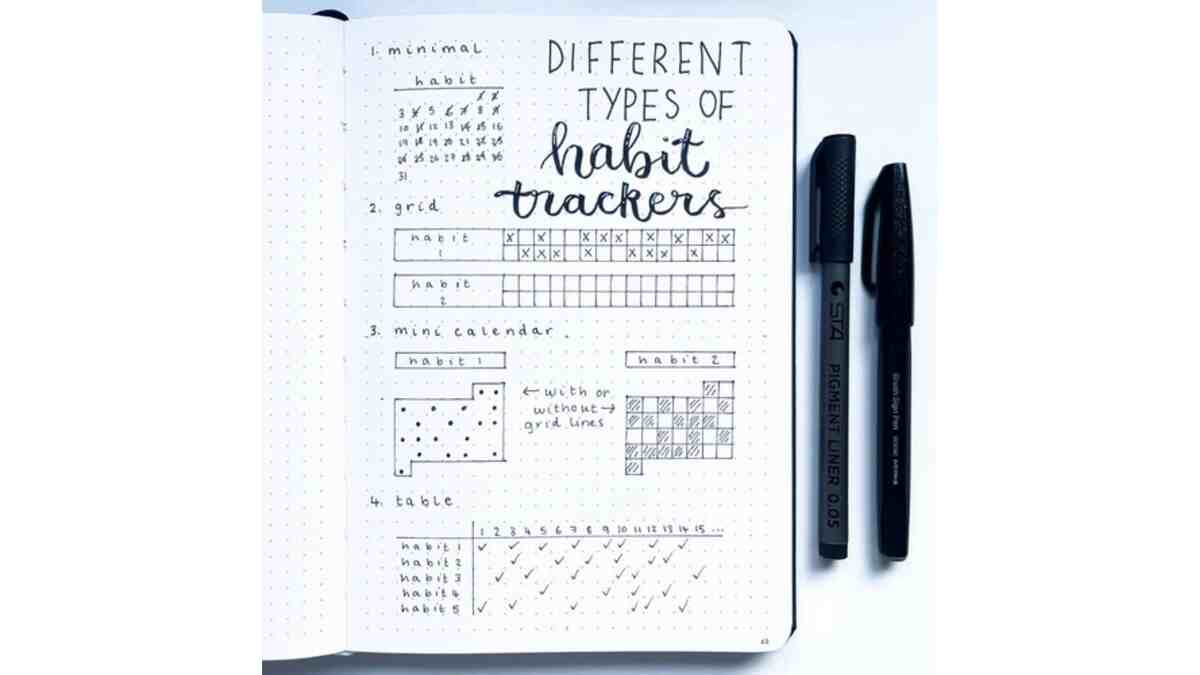 1. minimal
DIFFERENT
TYPES OF
habit
trackers
habit
1 2
3 4 5 6 7 8 9
10 11 12 13 14 15 16
17 18 19 20 21 22 23
24 25 26 27 28 29 30
31
2. grid
habit
1
x x x x x x x x x
x x x x x x x x
habit
2
3. mini calendar
habit 1
habit 2
← with or
without →
grid lines
4. table
1 2 3 4 5 6 7 8 9 10 11 12 13 14 15 ...
habit 1
habit 2
habit 3
habit 4
habit 5
STA PIGMENT LINER 0.05
Brush Sign Pen